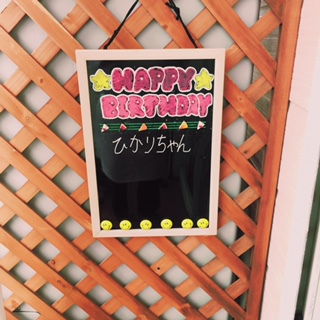 HAPPY
BIRTHDAY
ひかりちゃん